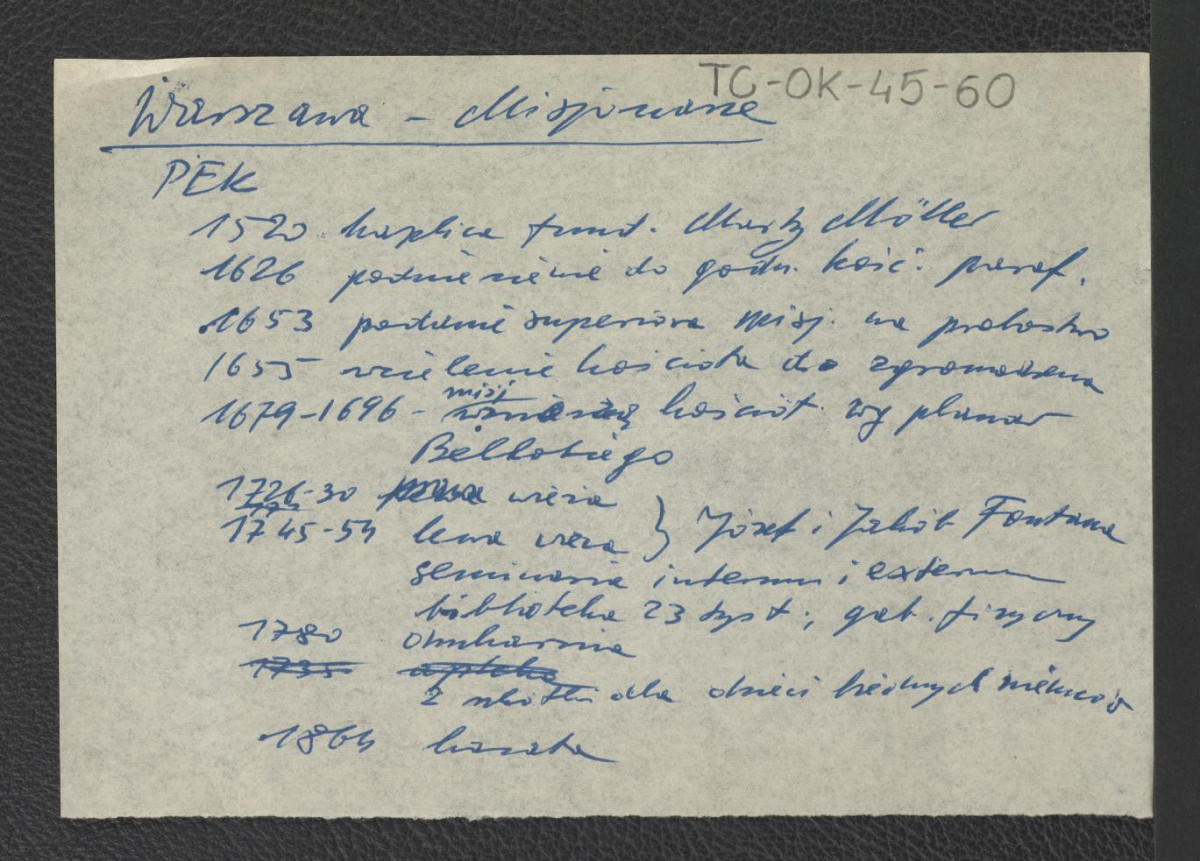 TG-OK-45-60
Warszawa - Misjonarze
PEK
1520 kaplica fund. Marty Möller
1626 podniesienie do godn. kośc. paraf.
1653 podanie superiora misj. na probostwo
1655 wcielenie kościoła do zgromadzenia
misj
1679-1696 - kościół wg planów
Bellottiego
1726-30 prawa wieża
1745-54 lewa wieża } Józef i Jakób Fontana
seminaria internum i externum
biblioteka 23 tys t; gab. fizyczny
1780 drukarnia
1735 apteka
2 szkółki dla dzieci biednych mieszcz
1864 kasata